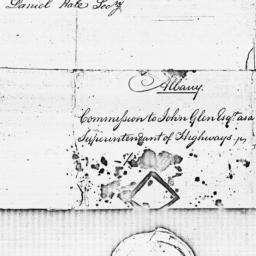 Daniel Hale Secry
Albany.
Commission to John Glen Esqr. as a
Superintendant of Highways.